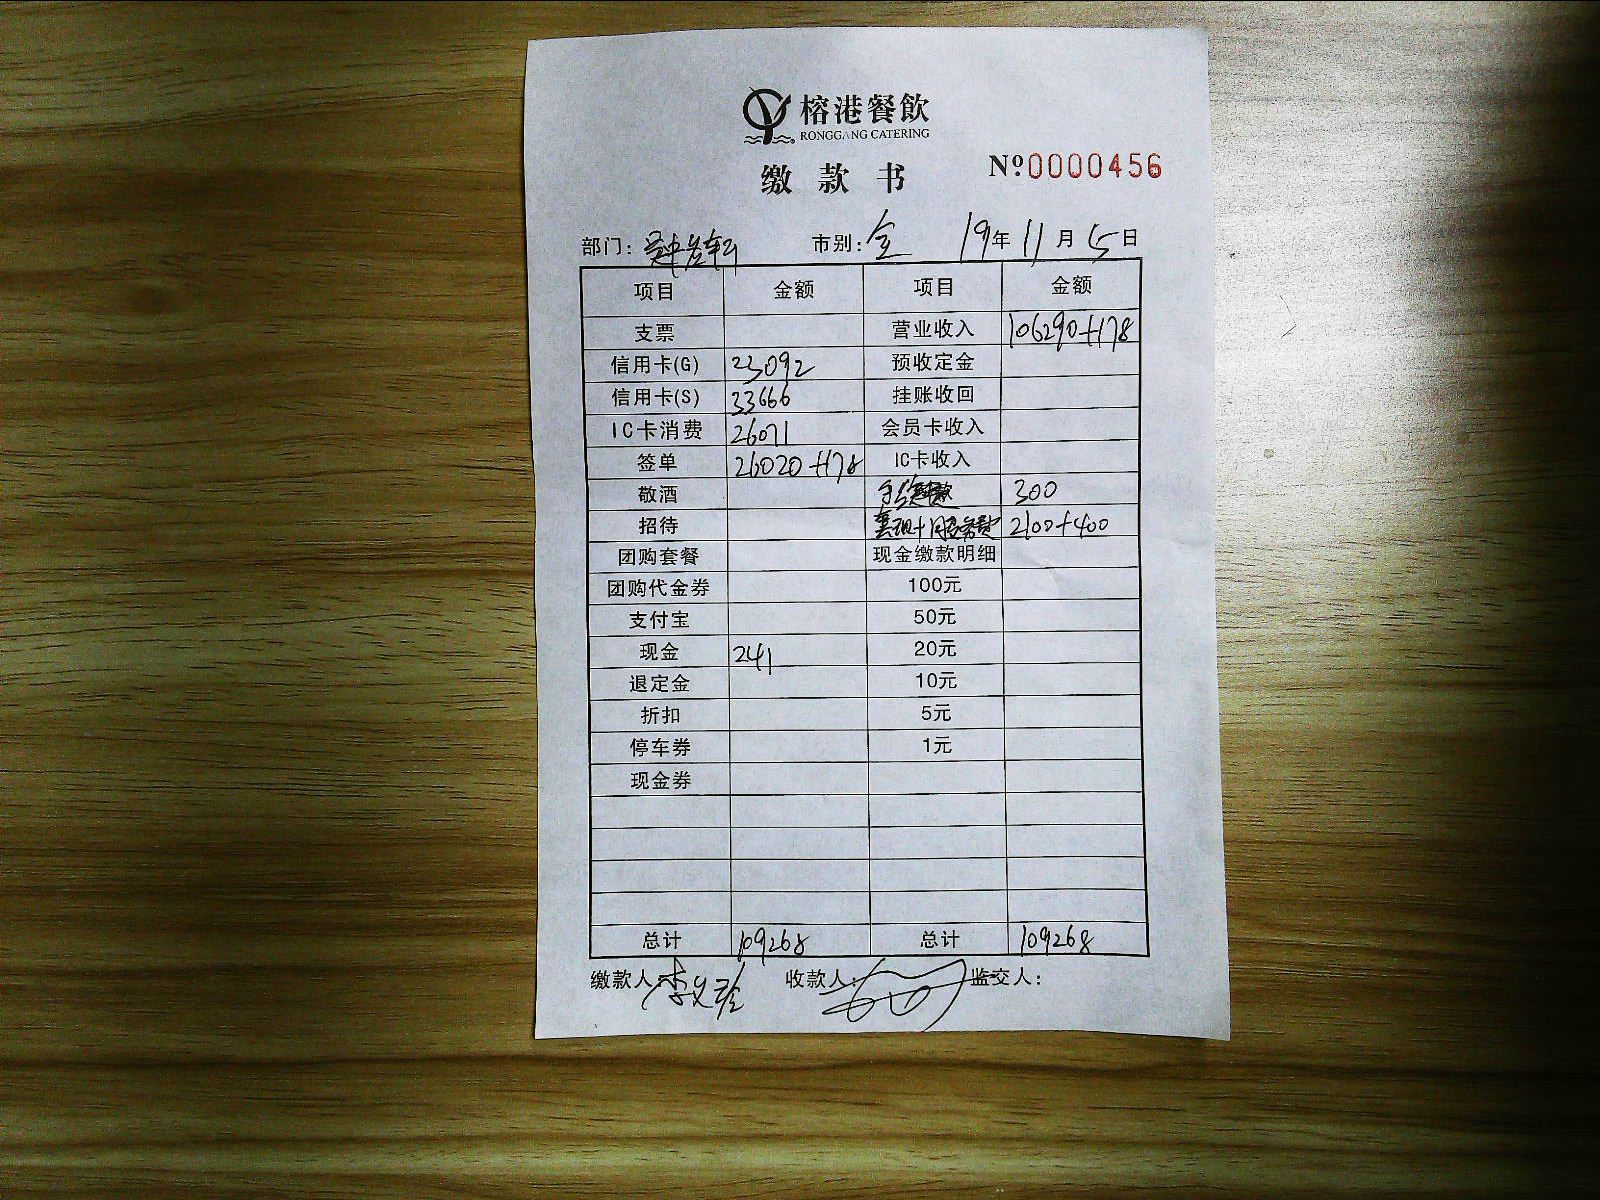 榕港餐飲
RONGGANG CATERING
缴款书 Nº0000456
部门: 市别:全 19年11月5日
项目 金额 项目 金额
支票 营业收入 106290+178
信用卡(G) 23092 预收定金
信用卡(S) 33666 挂账收回
IC卡消费 26071 会员卡收入
签单 26020+178 IC卡收入
敬酒 300
招待 2100+400
团购套餐 现金缴款明细
团购代金券 100元
支付宝 50元
现金 241 20元
退定金 10元
折扣 5元
停车券 1元
现金券
总计 109268 总计 109268
缴款人: 收款人: 监交人: